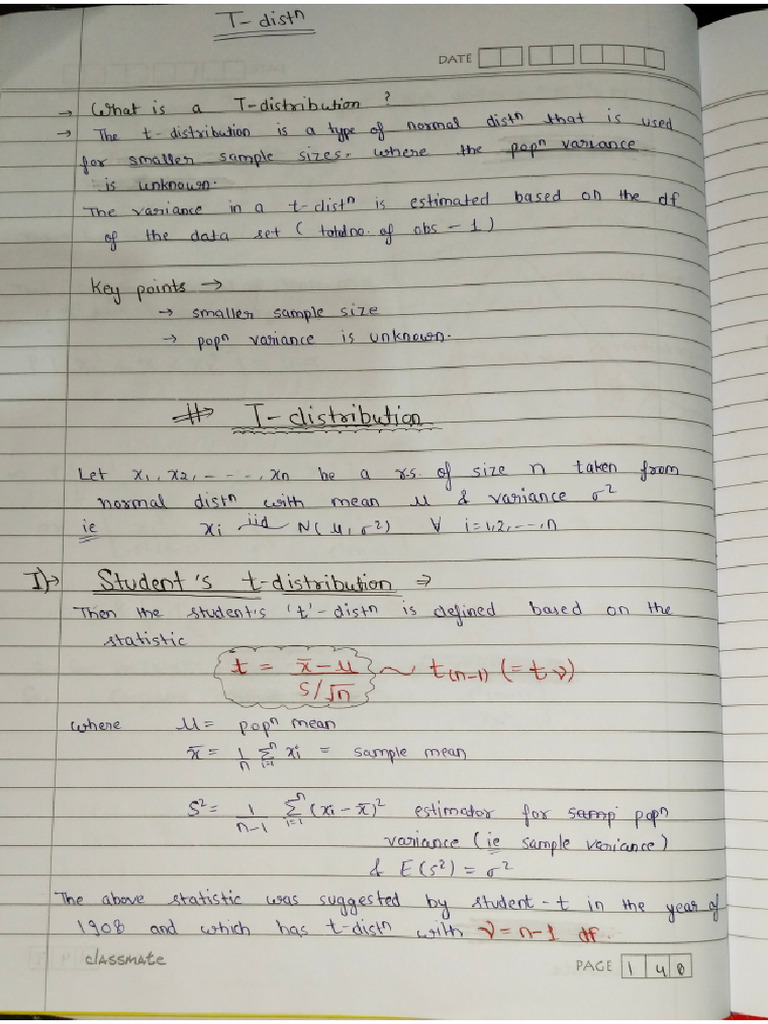 T-distⁿ
DATE
→ What is a T-distribution?
→ The t-distribution is a type of normal distⁿ that is used
for smaller sample sizes, where the popⁿ variance
is unknown.
The variance in a t-distⁿ is estimated based on the df
of the data set (total no. of obs - 1)
Key points →
→ smaller sample size
→ popⁿ variance is unknown.
# T-distribution
Let x₁, x₂, - - - -, xn be a r.s. of size n taken from
normal distⁿ with mean μ & variance σ²
ie xi iid N(μ, σ²) ∀ i=1,2,---,n
I)→ Student's t-distribution ⇒
Then the student's 't'-distⁿ is defined based on the
statistic
t = (x̄ - μ) / (S/√n) ~ t(n-1) (= tν)
where μ = popⁿ mean
x̄ = 1/n Σⁿᵢ₌₁ xi = sample mean
S² = 1/(n-1) Σⁿᵢ₌₁ (xi - x̄)² estimator for samp popⁿ
variance (ie sample variance)
& E(S²) = σ²
The above statistic was suggested by student-t in the year of
1908 and which has t-distⁿ with ν = n-1 df.
classmate
PAGE 1 4 0